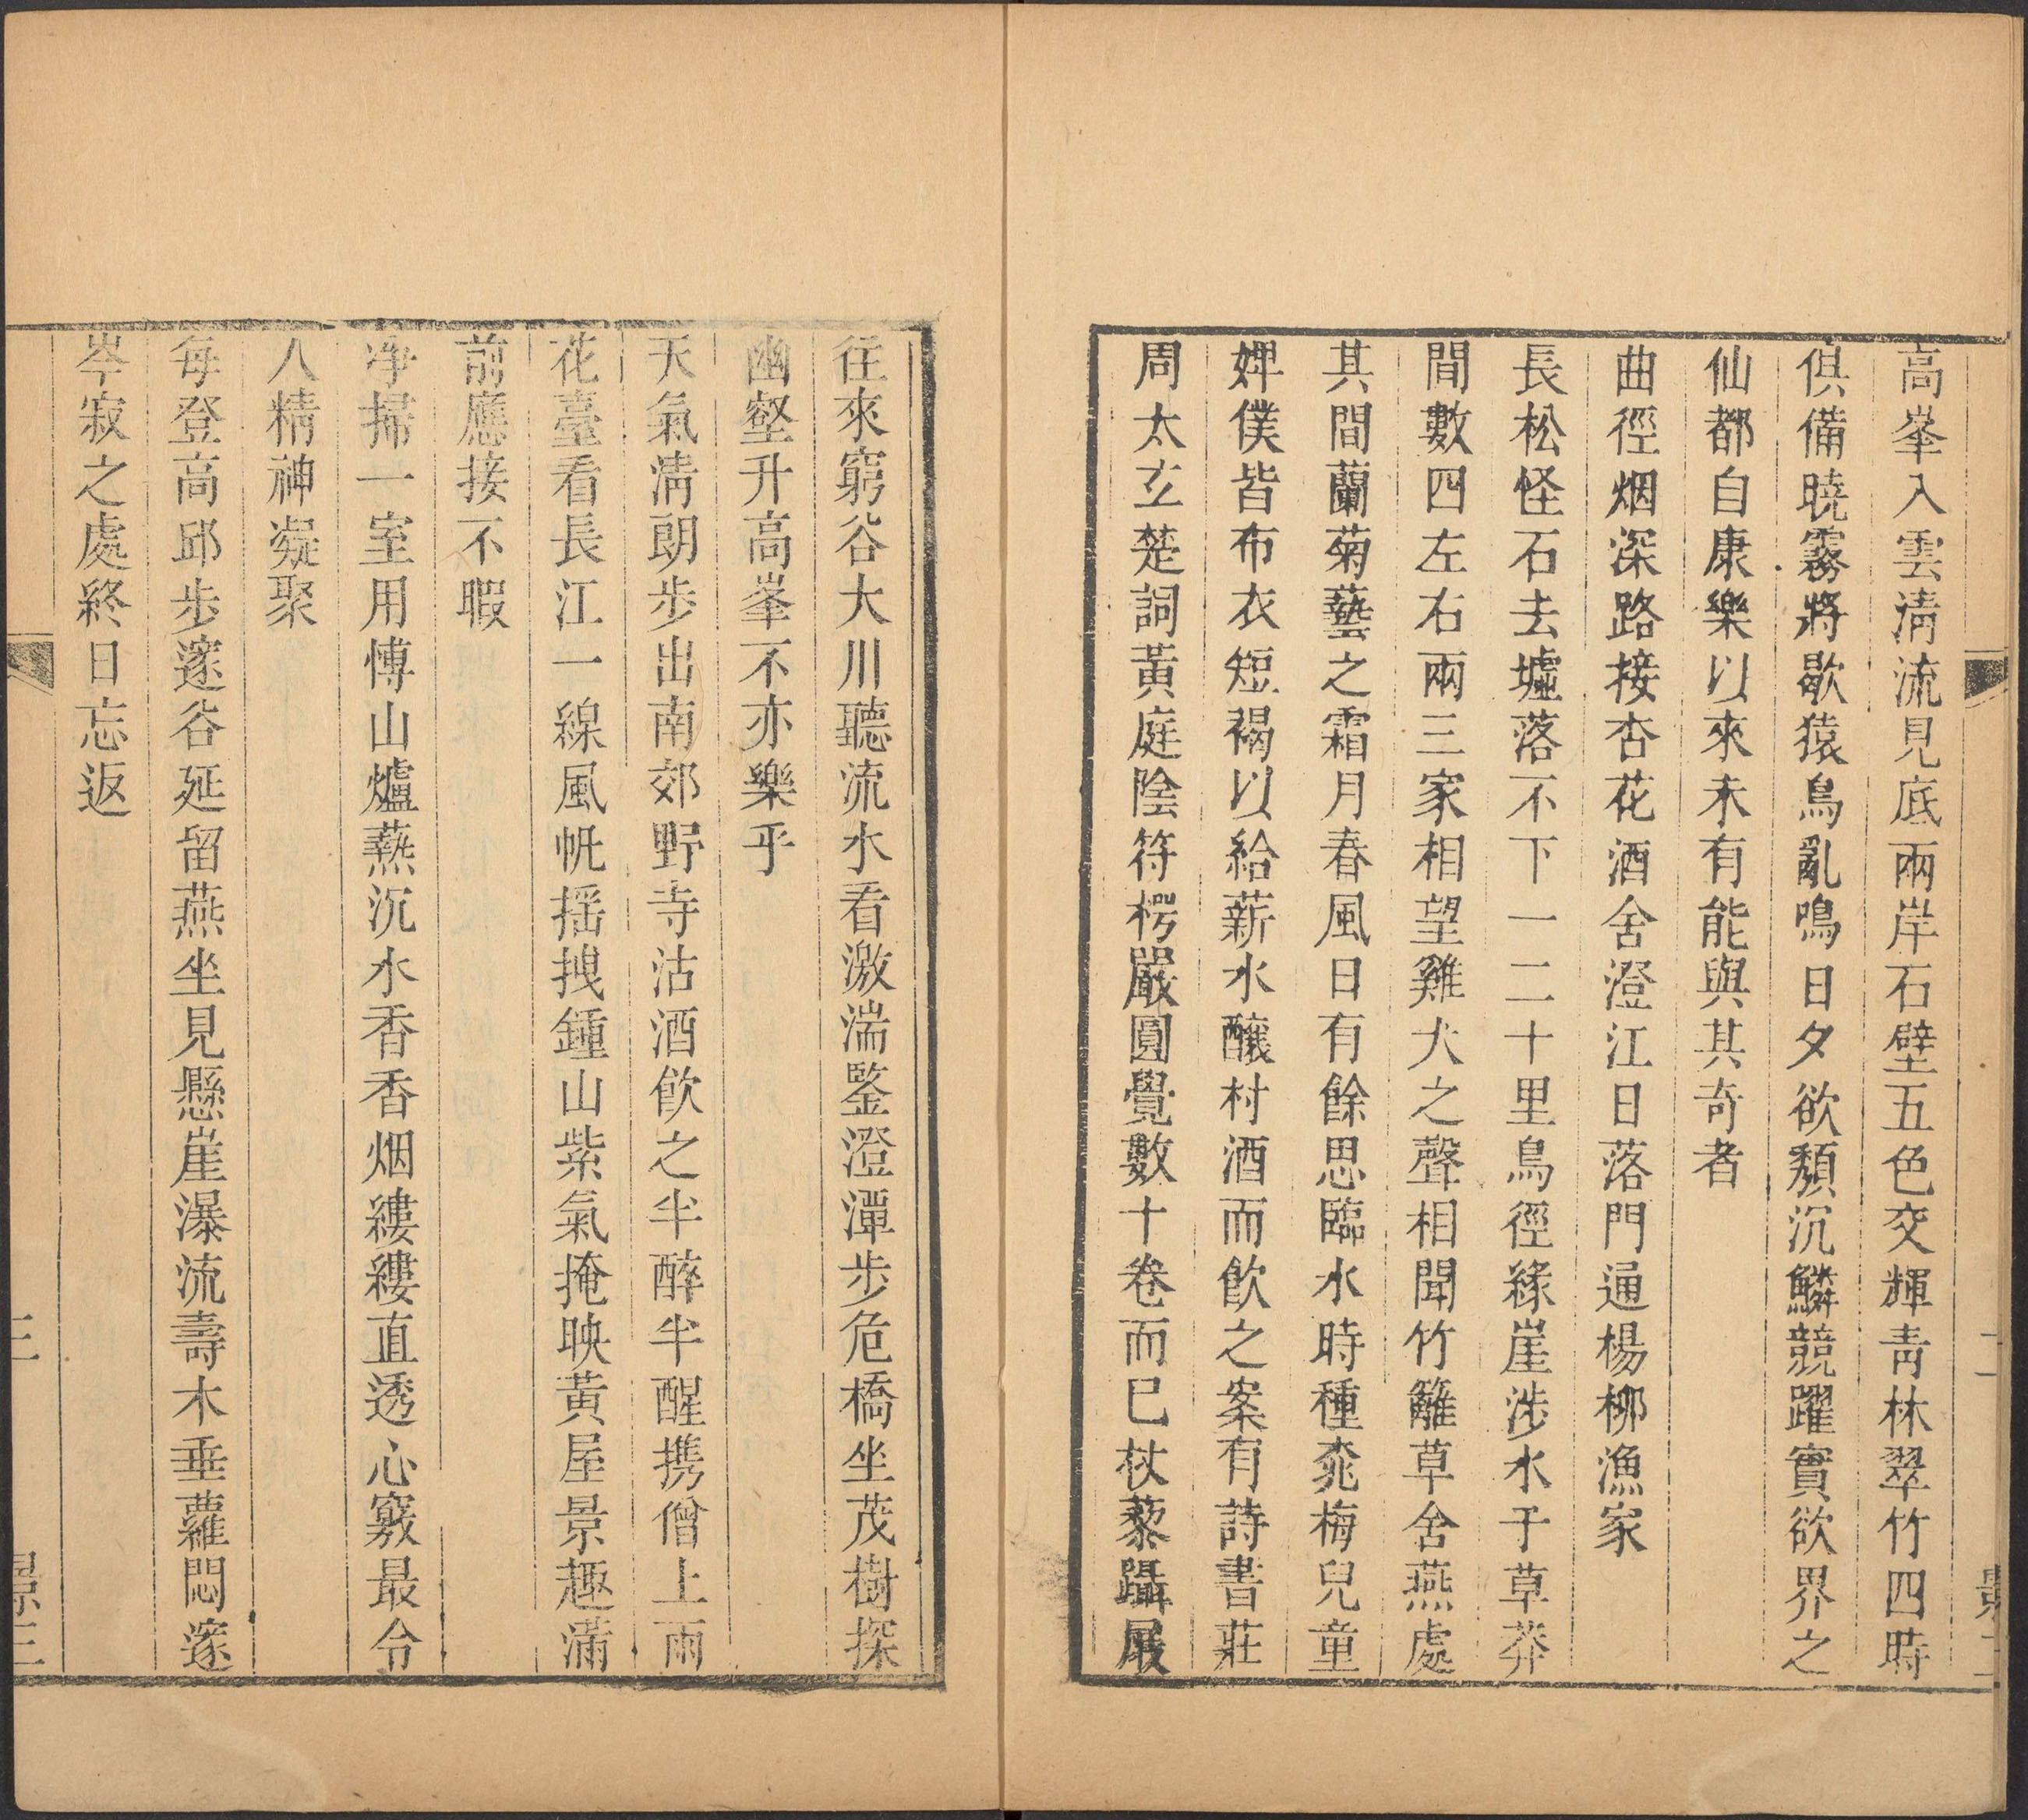 高峯入雲淸流見底兩岸石壁五色交輝靑林翠竹四時
俱備曉霧將歇猿鳥亂鳴日夕欲頽沉鱗競躍實欲界之
仙都自康樂以來未有能與其奇者
曲徑烟深路接杏花酒舍澄江日落門通楊柳漁家
長松怪石去墟落不下一二十里鳥徑緣崖涉水于草莽
間數四左右兩三家相望雞犬之聲相聞竹籬草舍燕處
其間蘭菊藝之霜月春風日有餘思臨水時種桃梅兒童
婢僕皆布衣短褐以給薪水釀村酒而飮之案有詩書莊
周太玄楚詞黃庭陰符楞嚴圓覺數十卷而已杖藜躡屐
往來窮谷大川聽流水看激湍鑒澄潭步危橋坐茂樹探
幽壑升高峯不亦樂乎
天氣淸朗步出南郊野寺沽酒飮之半醉半醒携僧上雨
花臺看長江一線風帆揺拽鍾山紫氣掩映黃屋景趣滿
前應接不暇
凈掃一室用博山爐爇沉水香香烟縷縷直透心竅最令
人精神凝聚
每登高邱步邃谷延留燕坐見懸崖瀑流壽木垂蘿閟邃
岑寂之處終日忘返
三
景三